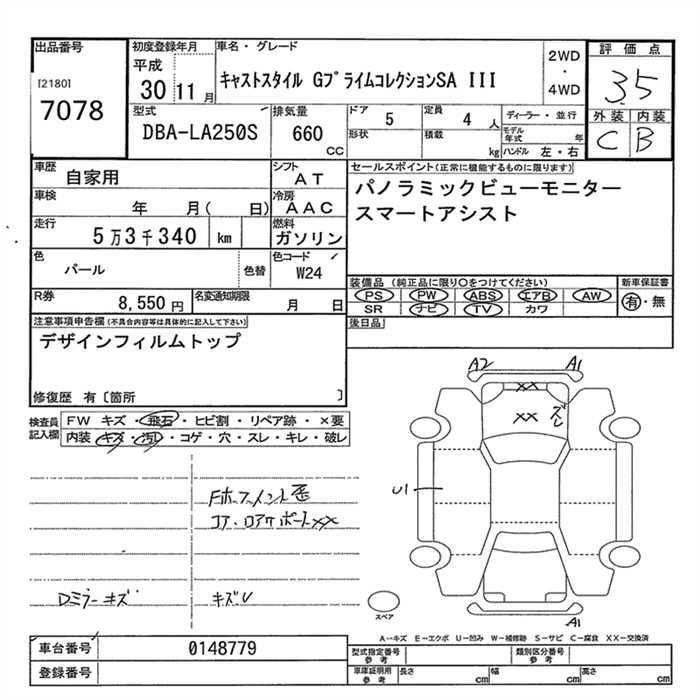 出品番号
[2180]
7078
初度登録年月
平成
30 11 月
車名・グレード
キャストスタイル GプライムコレクションSA III
2WD
・
4WD
評価点
3.5
外装 内装
C B
型式
DBA-LA250S
排気量
660
CC
ドア 5
形状
定員 4 人
積載 kg
ディーラー・並行
モデル年式 年
ハンドル 左・右
車歴
自家用
シフト
AT
車検
年 月( 日)
冷房
AAC
走行
5万3千340 km
燃料
ガソリン
色
パール
色替
色コード
W24
R券
8,550 円
名変通知期限
月 日
セールスポイント(正常に機能するものに限ります)
パノラミックビューモニター
スマートアシスト
装備品 (純正品に限り○をつけてください)
PS PW ABS エアB AW
SR ナビ TV カワ
新車保証書
有・無
後日品
注意事項申告欄(不具合内容等は具体的に記入して下さい)
デザインフィルムトップ
修復歴 有〔箇所 〕
検査員
記入欄
FW キズ・飛石・ヒビ割・リペア跡・×要
内装・キズ・汚れ・コゲ・穴・スレ・キレ・破レ
コア・ロアサポートXX
Dミラーキズ
キズU
A2
A1
XX
XX
ズレ
U1
A1
スペア
A-キズ E-エクボ U-凹み W-補修跡 S-サビ C-腐食 XX-交換済
車台番号
0148779
登録番号
型式指定番号
参考
類別区分番号
参考
車庫証明用
参考
長さ cm
幅 cm
高さ cm